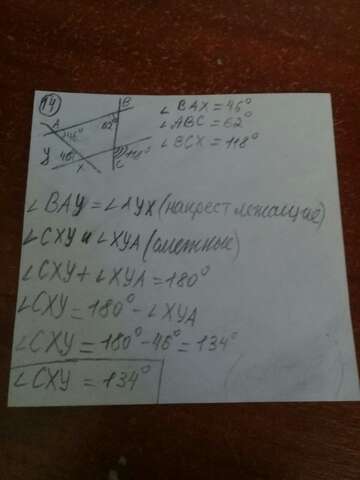 14
B
A
62°
46°
У
46°
118°
X
C
∠BAX = 46°
∠ABC = 62°
∠BCX = 118°
∠BAY = ∠AYX (накрест лежащие)
∠CXY и ∠XYA (смежные)
∠CXY + ∠XYA = 180°
∠CXY = 180° - ∠XYA
∠CXY = 180° - 46° = 134°
∠CXY = 134°